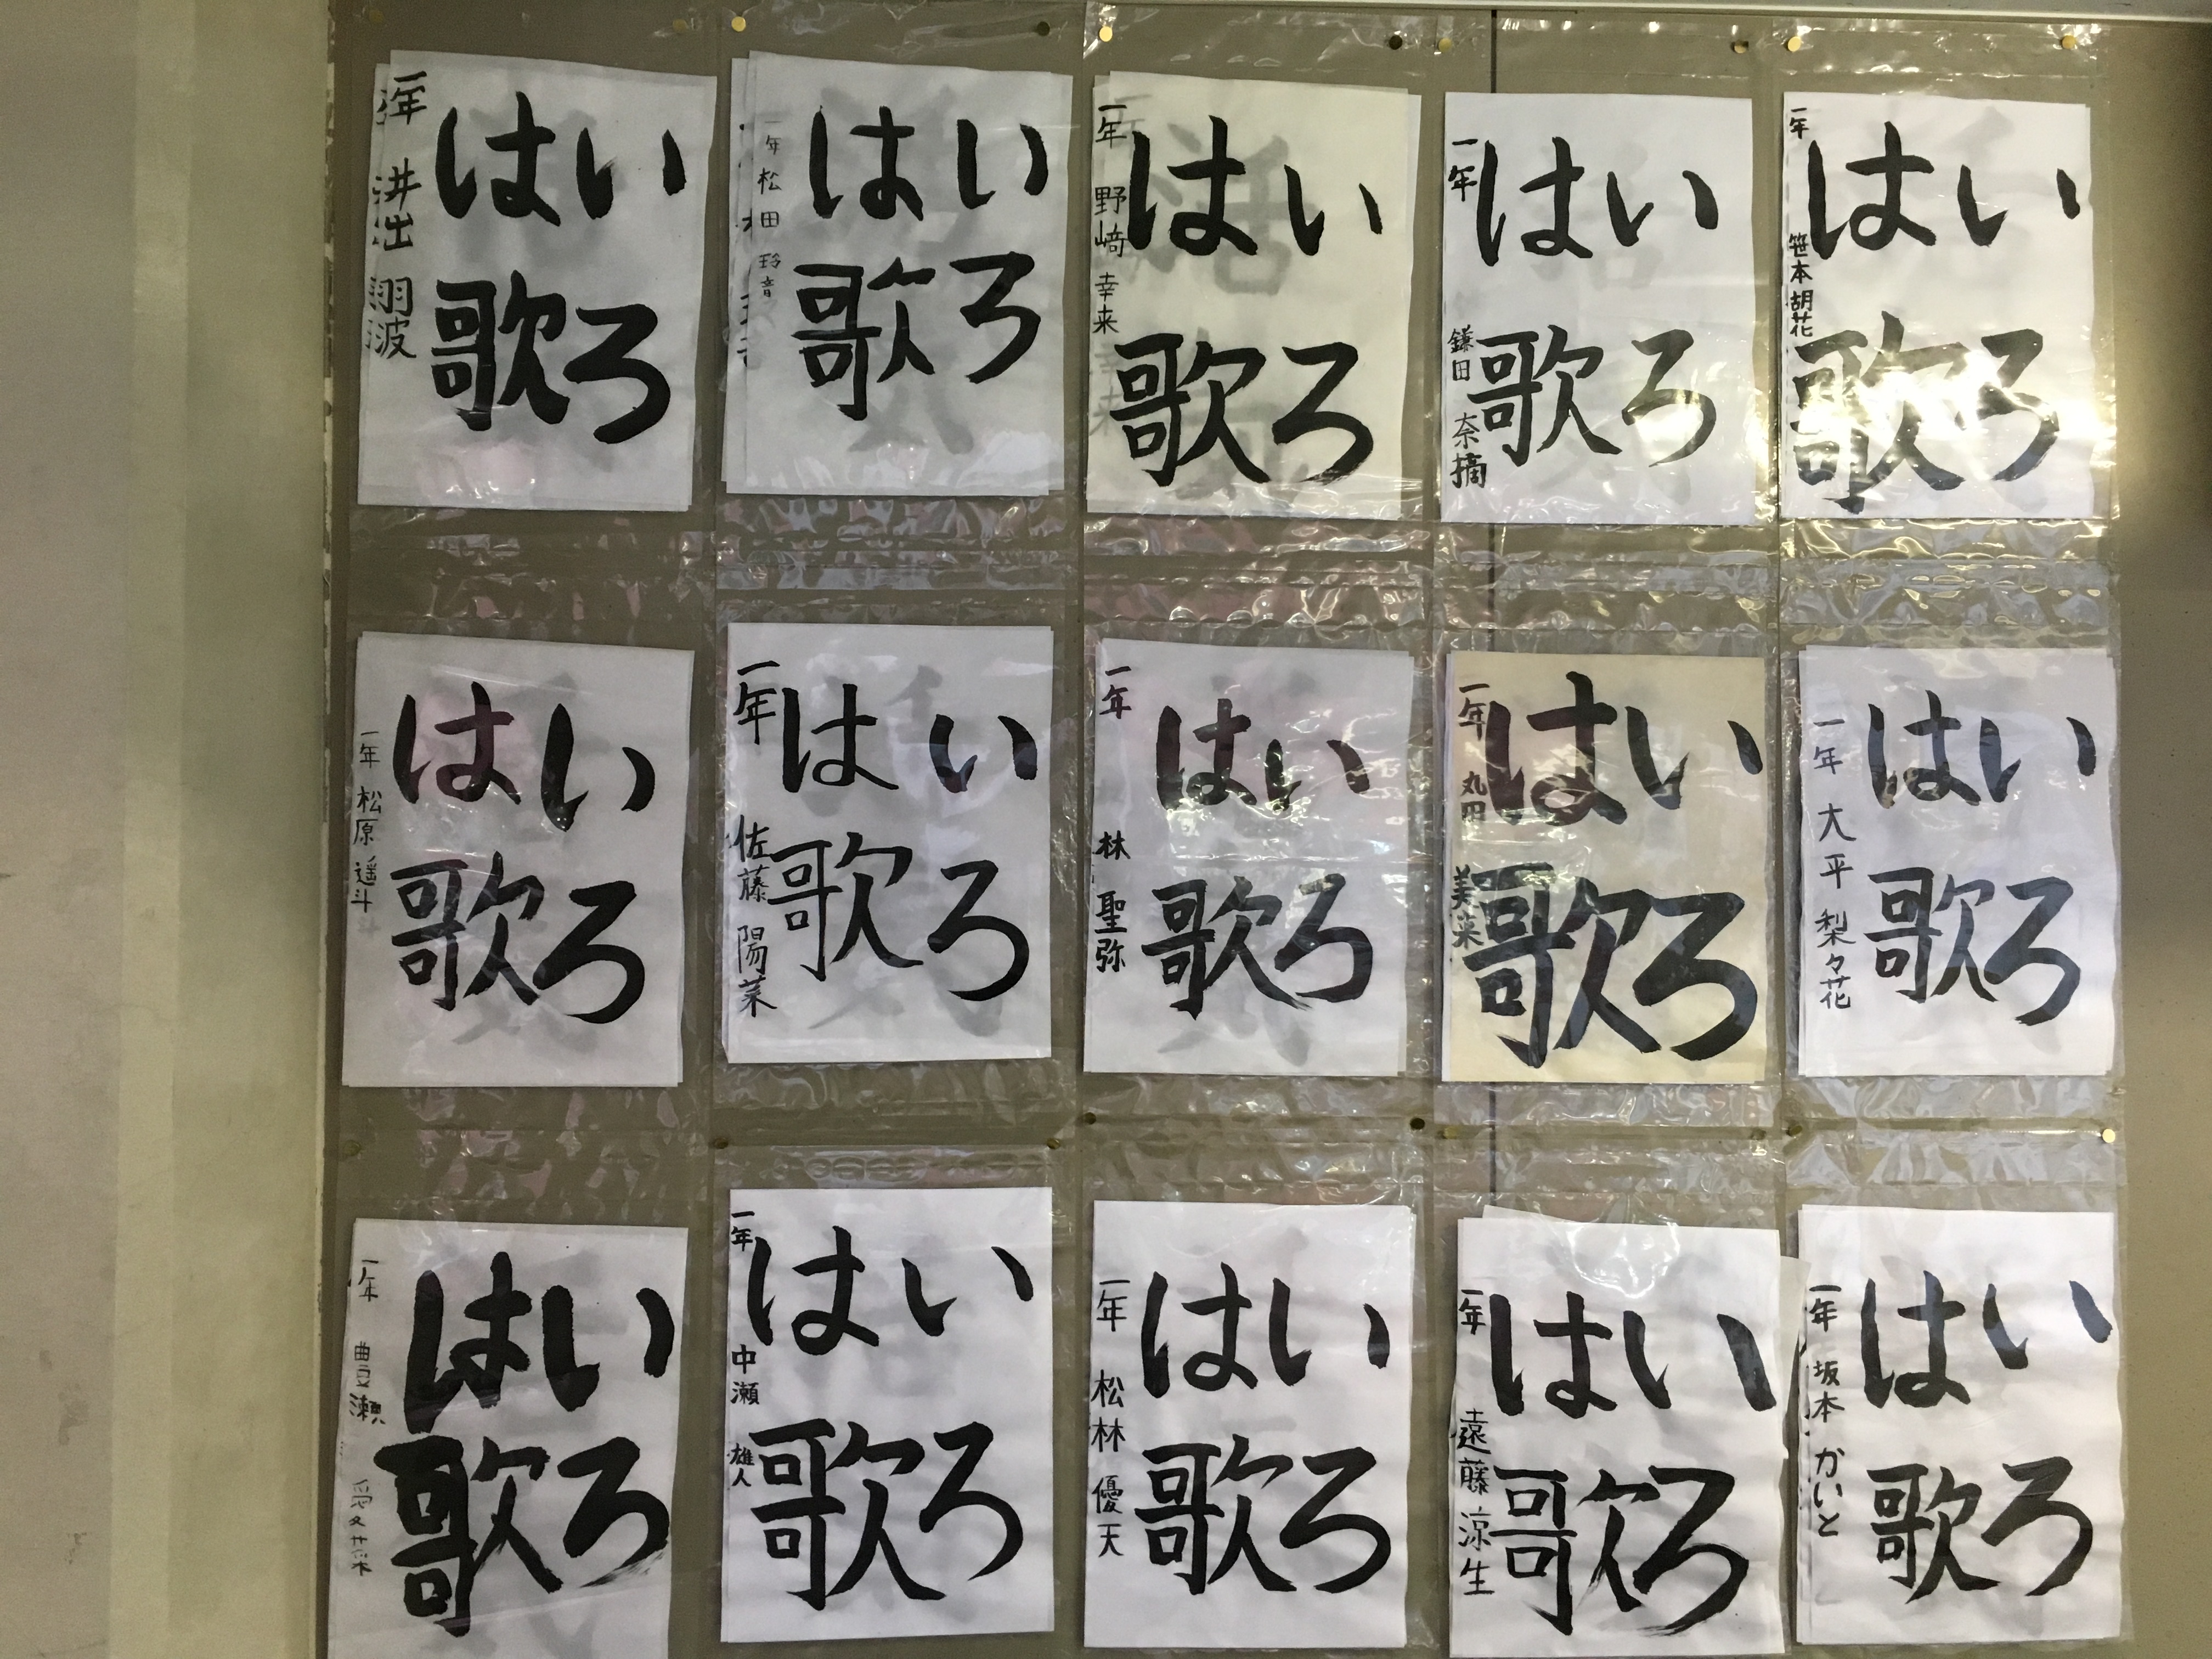 いろ
は歌
一年
いろ
は歌
一年 松田 玲音
いろ
は歌
一年 野﨑 幸来
いろ
は歌
一年 鎌田 奈摘
いろ
は歌
一年 笹本胡花
いろ
は歌
一年 松原 遥斗
いろ
は歌
一年 佐藤 陽菜
いろ
は歌
一年 林 聖弥
いろ
は歌
一年 丸田 美菜
いろ
は歌
一年 大平 梨々花
いろ
は歌
一年 豊瀬 愛菜
いろ
は歌
一年 中瀬 雄人
いろ
は歌
一年 松林 優天
いろ
は歌
一年 遠藤 涼生
いろ
は歌
一年 坂本 かいと